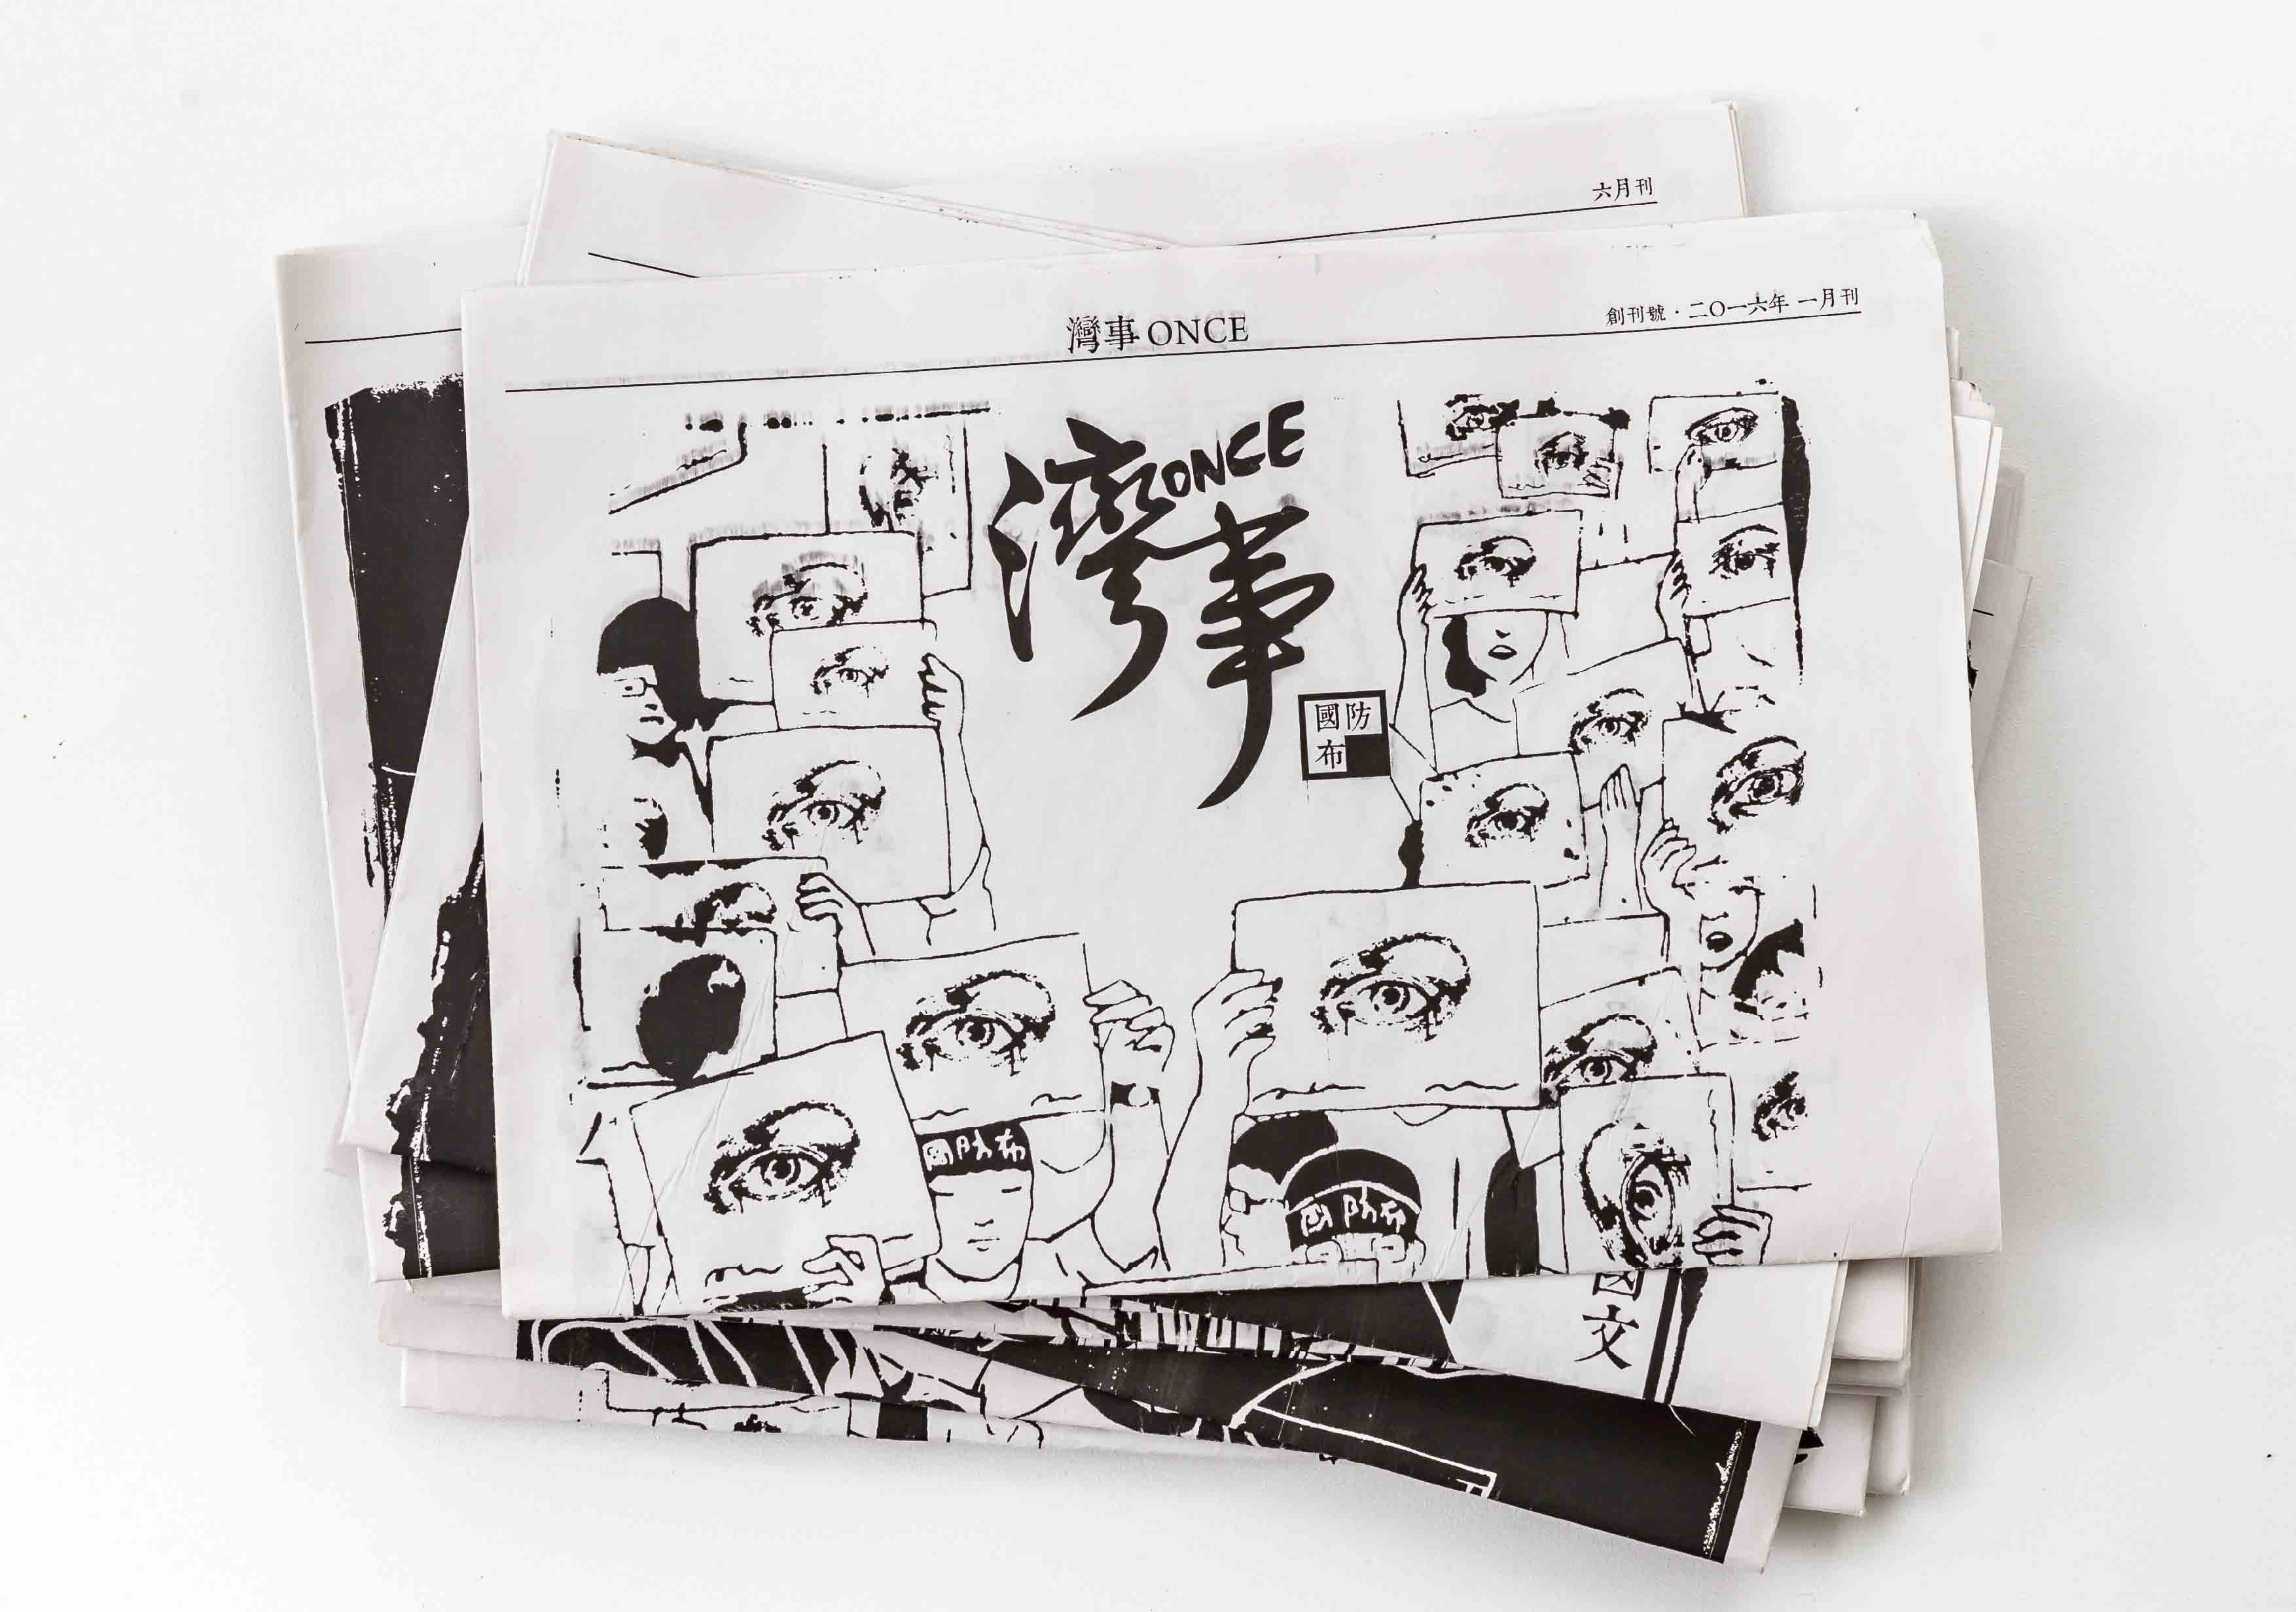 六月刊
灣事 ONCE
創刊號・二〇一六年 一月刊
灣事
ONCE
國防
布
國防布
國防布
國文